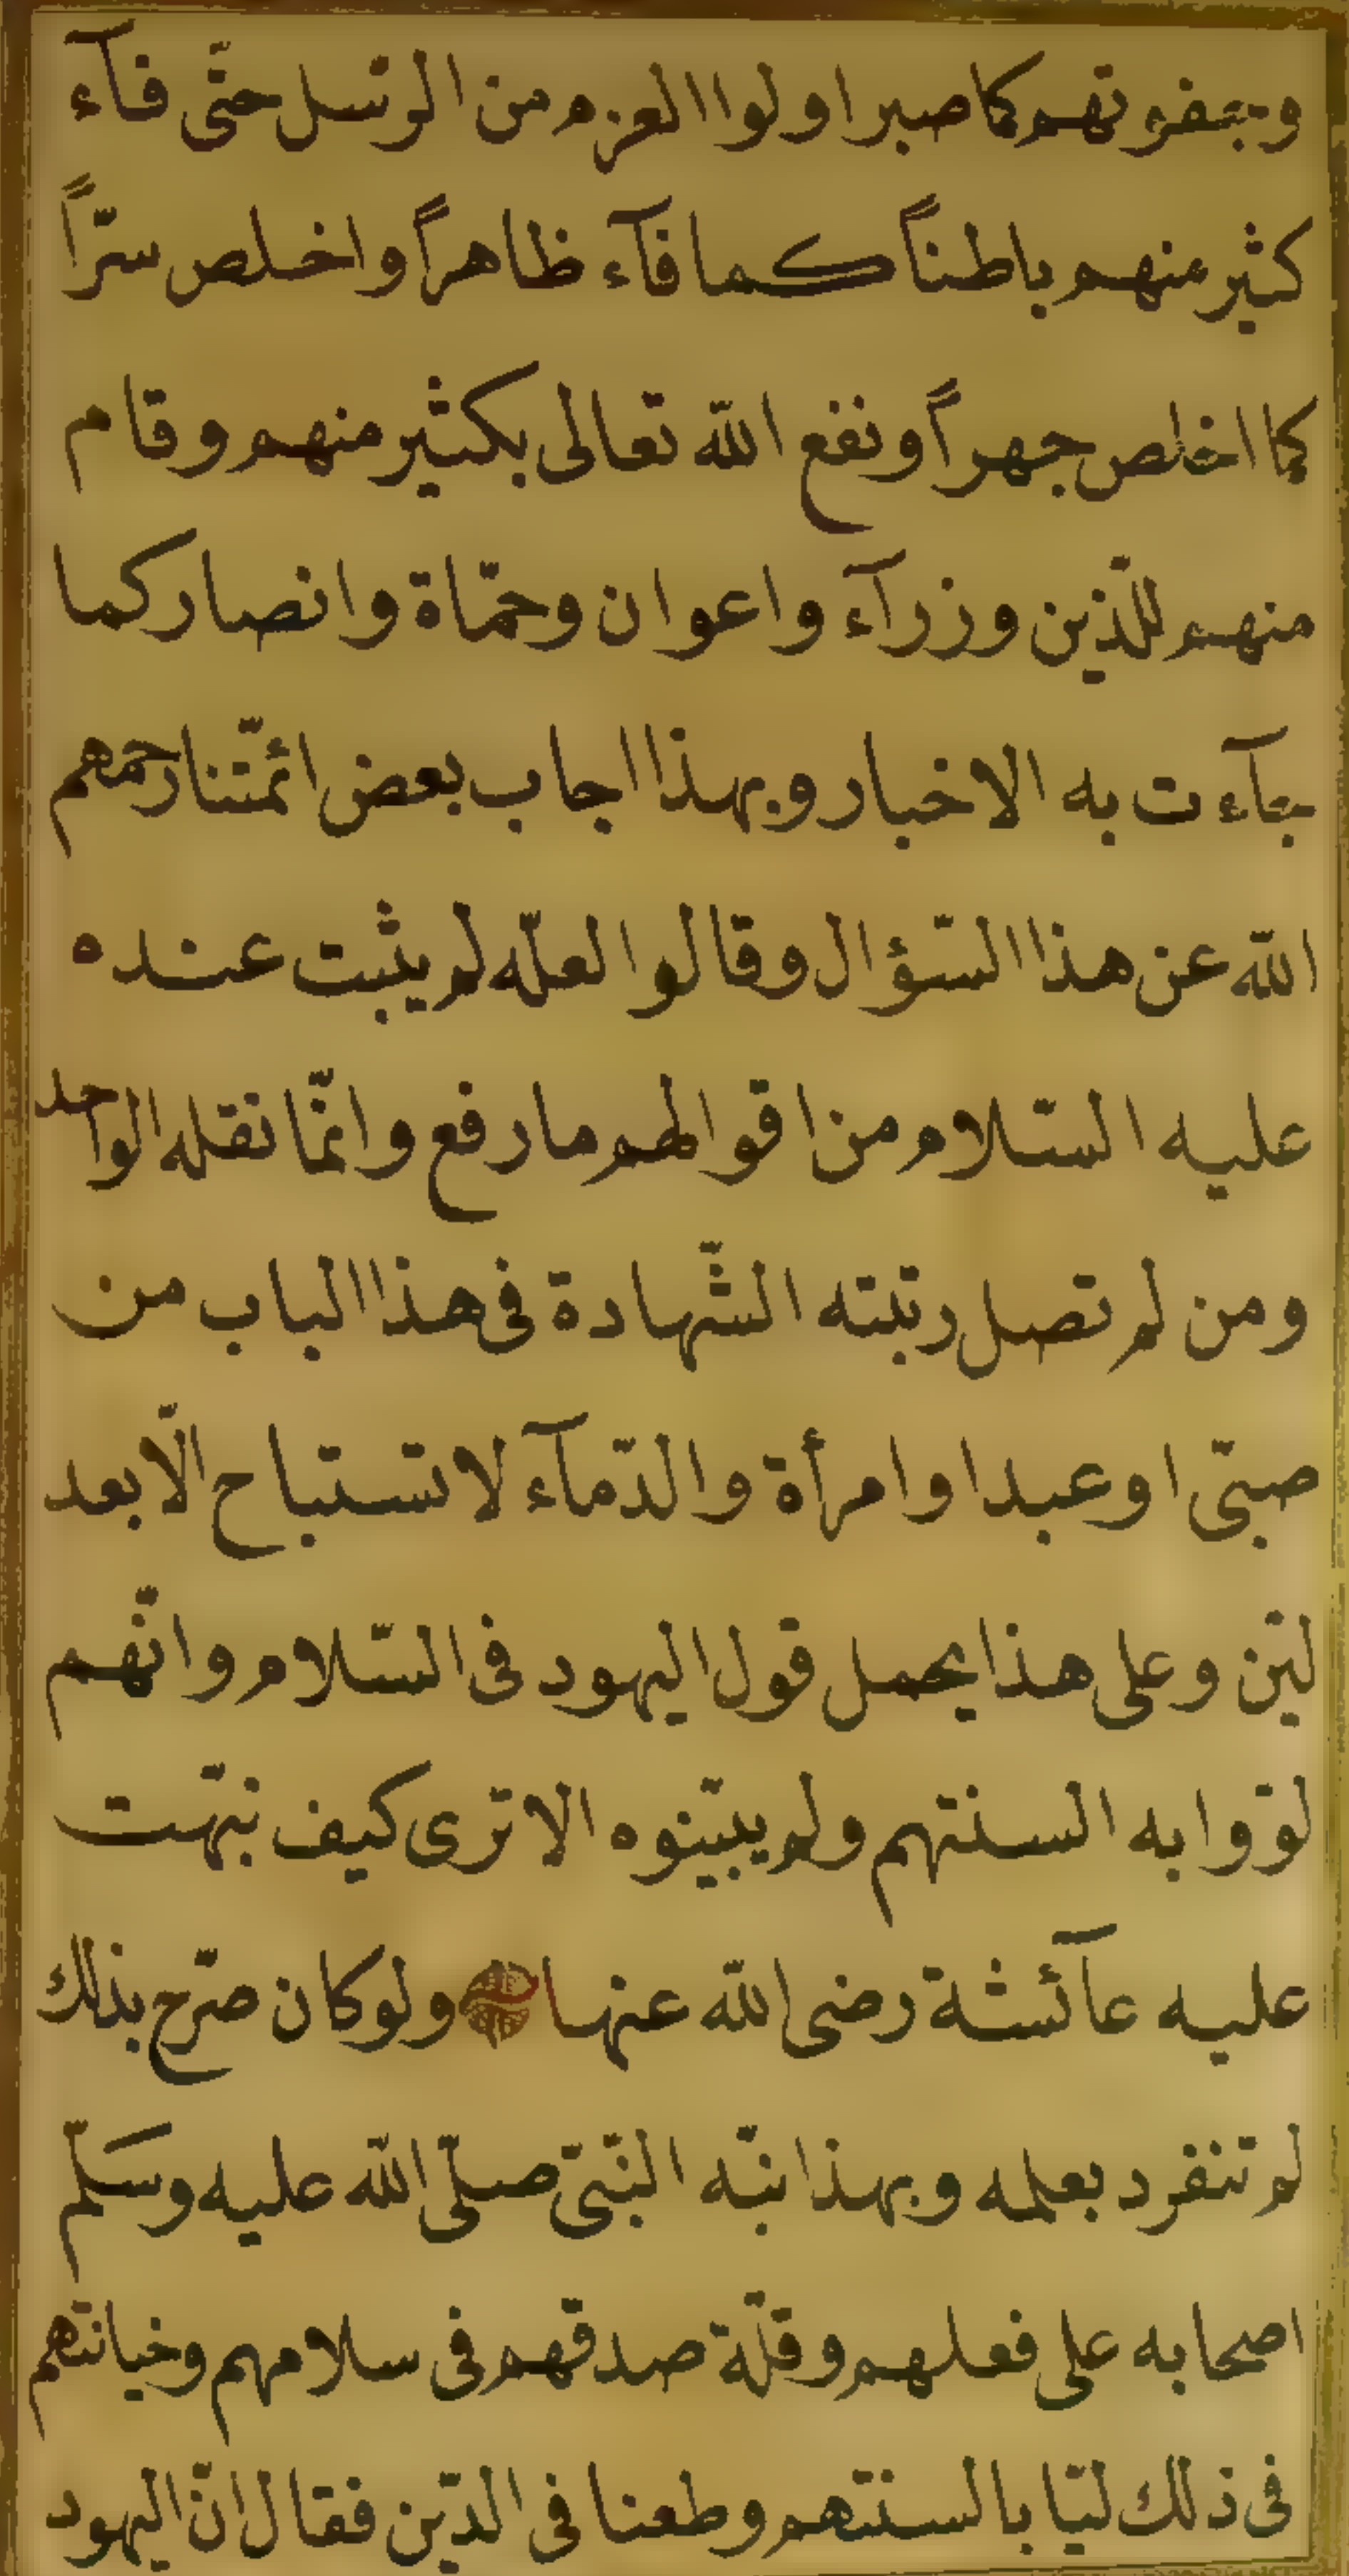 وجفوتهم كما صبر اولوا العزم من الرسل حتّى فآء
كثير منهم باطناً كما فآء ظاهراً واخلص سرّاً
كما اخلص جهراً ونفع الله تعالى بكثير منهم وقام
منهم للدّين وزرآء واعوان وحمّاة وانصار كما
جآءت به الاخبار وبهذا اجاب بعض ائمّتنا رحمهم
الله عن هذا السّؤال وقالوا لعلّه لم يثبت عنده
عليه السّلام من اقوالهم ما رفع وانّما نقله الواحد
ومن لم تصل رتبته الشّهادة فى هذا الباب من
صبىّ او عبد او امرأة والدّمآء لا تستباح الّا بعد
لين وعلى هذا يحمل قول اليهود فى السّلام وانّهم
لوّوا به السنتهم ولم يبيّنوه الا ترى كيف نبّهت
عليه عآئشة رضى الله عنها ولو كان صرّح بذلك
لم تنفرد بعلمه وبهذا نبّه النّبىّ صلّى الله عليه وسَلّم
اصحابه على فعلهم وقلّة صدقهم فى سلامهم وخيانتهم
فى ذلك ليّا بالسنتهم وطعنا فى الدّين فقال انّ اليهود